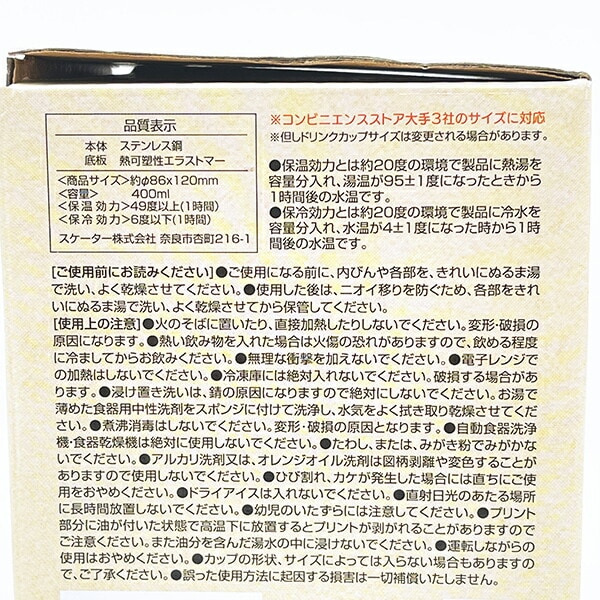 品質表示
本体 ステンレス鋼
底板 熱可塑性エラストマー
<商品サイズ>約φ86x120mm
<容量> 400ml
<保温効力>49度以上(1時間)
<保冷効力>6度以下(1時間)
スケーター株式会社 奈良市杏町216-1
※コンビニエンスストア大手3社のサイズに対応
※但しドリンクカップサイズは変更される場合があります。
●保温効力とは約20度の環境で製品に熱湯を
容量分入れ、湯温が95±1度になったときから
1時間後の水温です。
●保冷効力とは約20度の環境で製品に冷水を
容量分入れ、水温が4±1度になった時から1時
間後の水温です。
[ご使用前にお読みください]●ご使用になる前に、内びんや各部を、きれいにぬるま湯
で洗い、よく乾燥させてください。●使用した後は、ニオイ移りを防ぐため、各部をきれ
いにぬるま湯で洗い、よく乾燥させてから保管してください。
[使用上の注意]●火のそばに置いたり、直接加熱したりしないでください。変形・破損の
原因になります。●熱い飲み物を入れた場合は火傷の恐れがありますので、飲める程度
に冷ましてからお飲みください。●無理な衝撃を加えないでください。●電子レンジで
の加熱はしないでください。●冷凍庫には絶対入れないでください。破損する場合があ
ります。●浸け置き洗いは、錆の原因になりますので絶対にしないでください。お湯で
薄めた食器用中性洗剤をスポンジに付けて洗浄し、水気をよく拭き取り乾燥させてくだ
さい。●煮沸消毒はしないでください。変形・破損の原因となります。●自動食器洗浄
機・食器乾燥機は絶対に使用しないでください。●たわし、または、みがき粉でみがかな
いでください。●アルカリ洗剤又は、オレンジオイル洗剤は図柄剥離や変色することが
ありますので使用しないでください。●ひび割れ、カケが発生した場合には直ちにご使
用をおやめください。●ドライアイスは入れないでください。●直射日光のあたる場所
に長時間放置しないでください。●幼児のいたずらには注意してください。●プリント
部分に油が付いた状態で高温下に放置するとプリントが剥がれることがありますので
ご注意ください。また油分を含んだ湯水の中に浸けないでください。●運転しながらの
使用はおやめください。●カップの形状、サイズによっては入らない場合もありますの
で、ご了承ください。●誤った使用方法に起因する損害は一切補償いたしません。